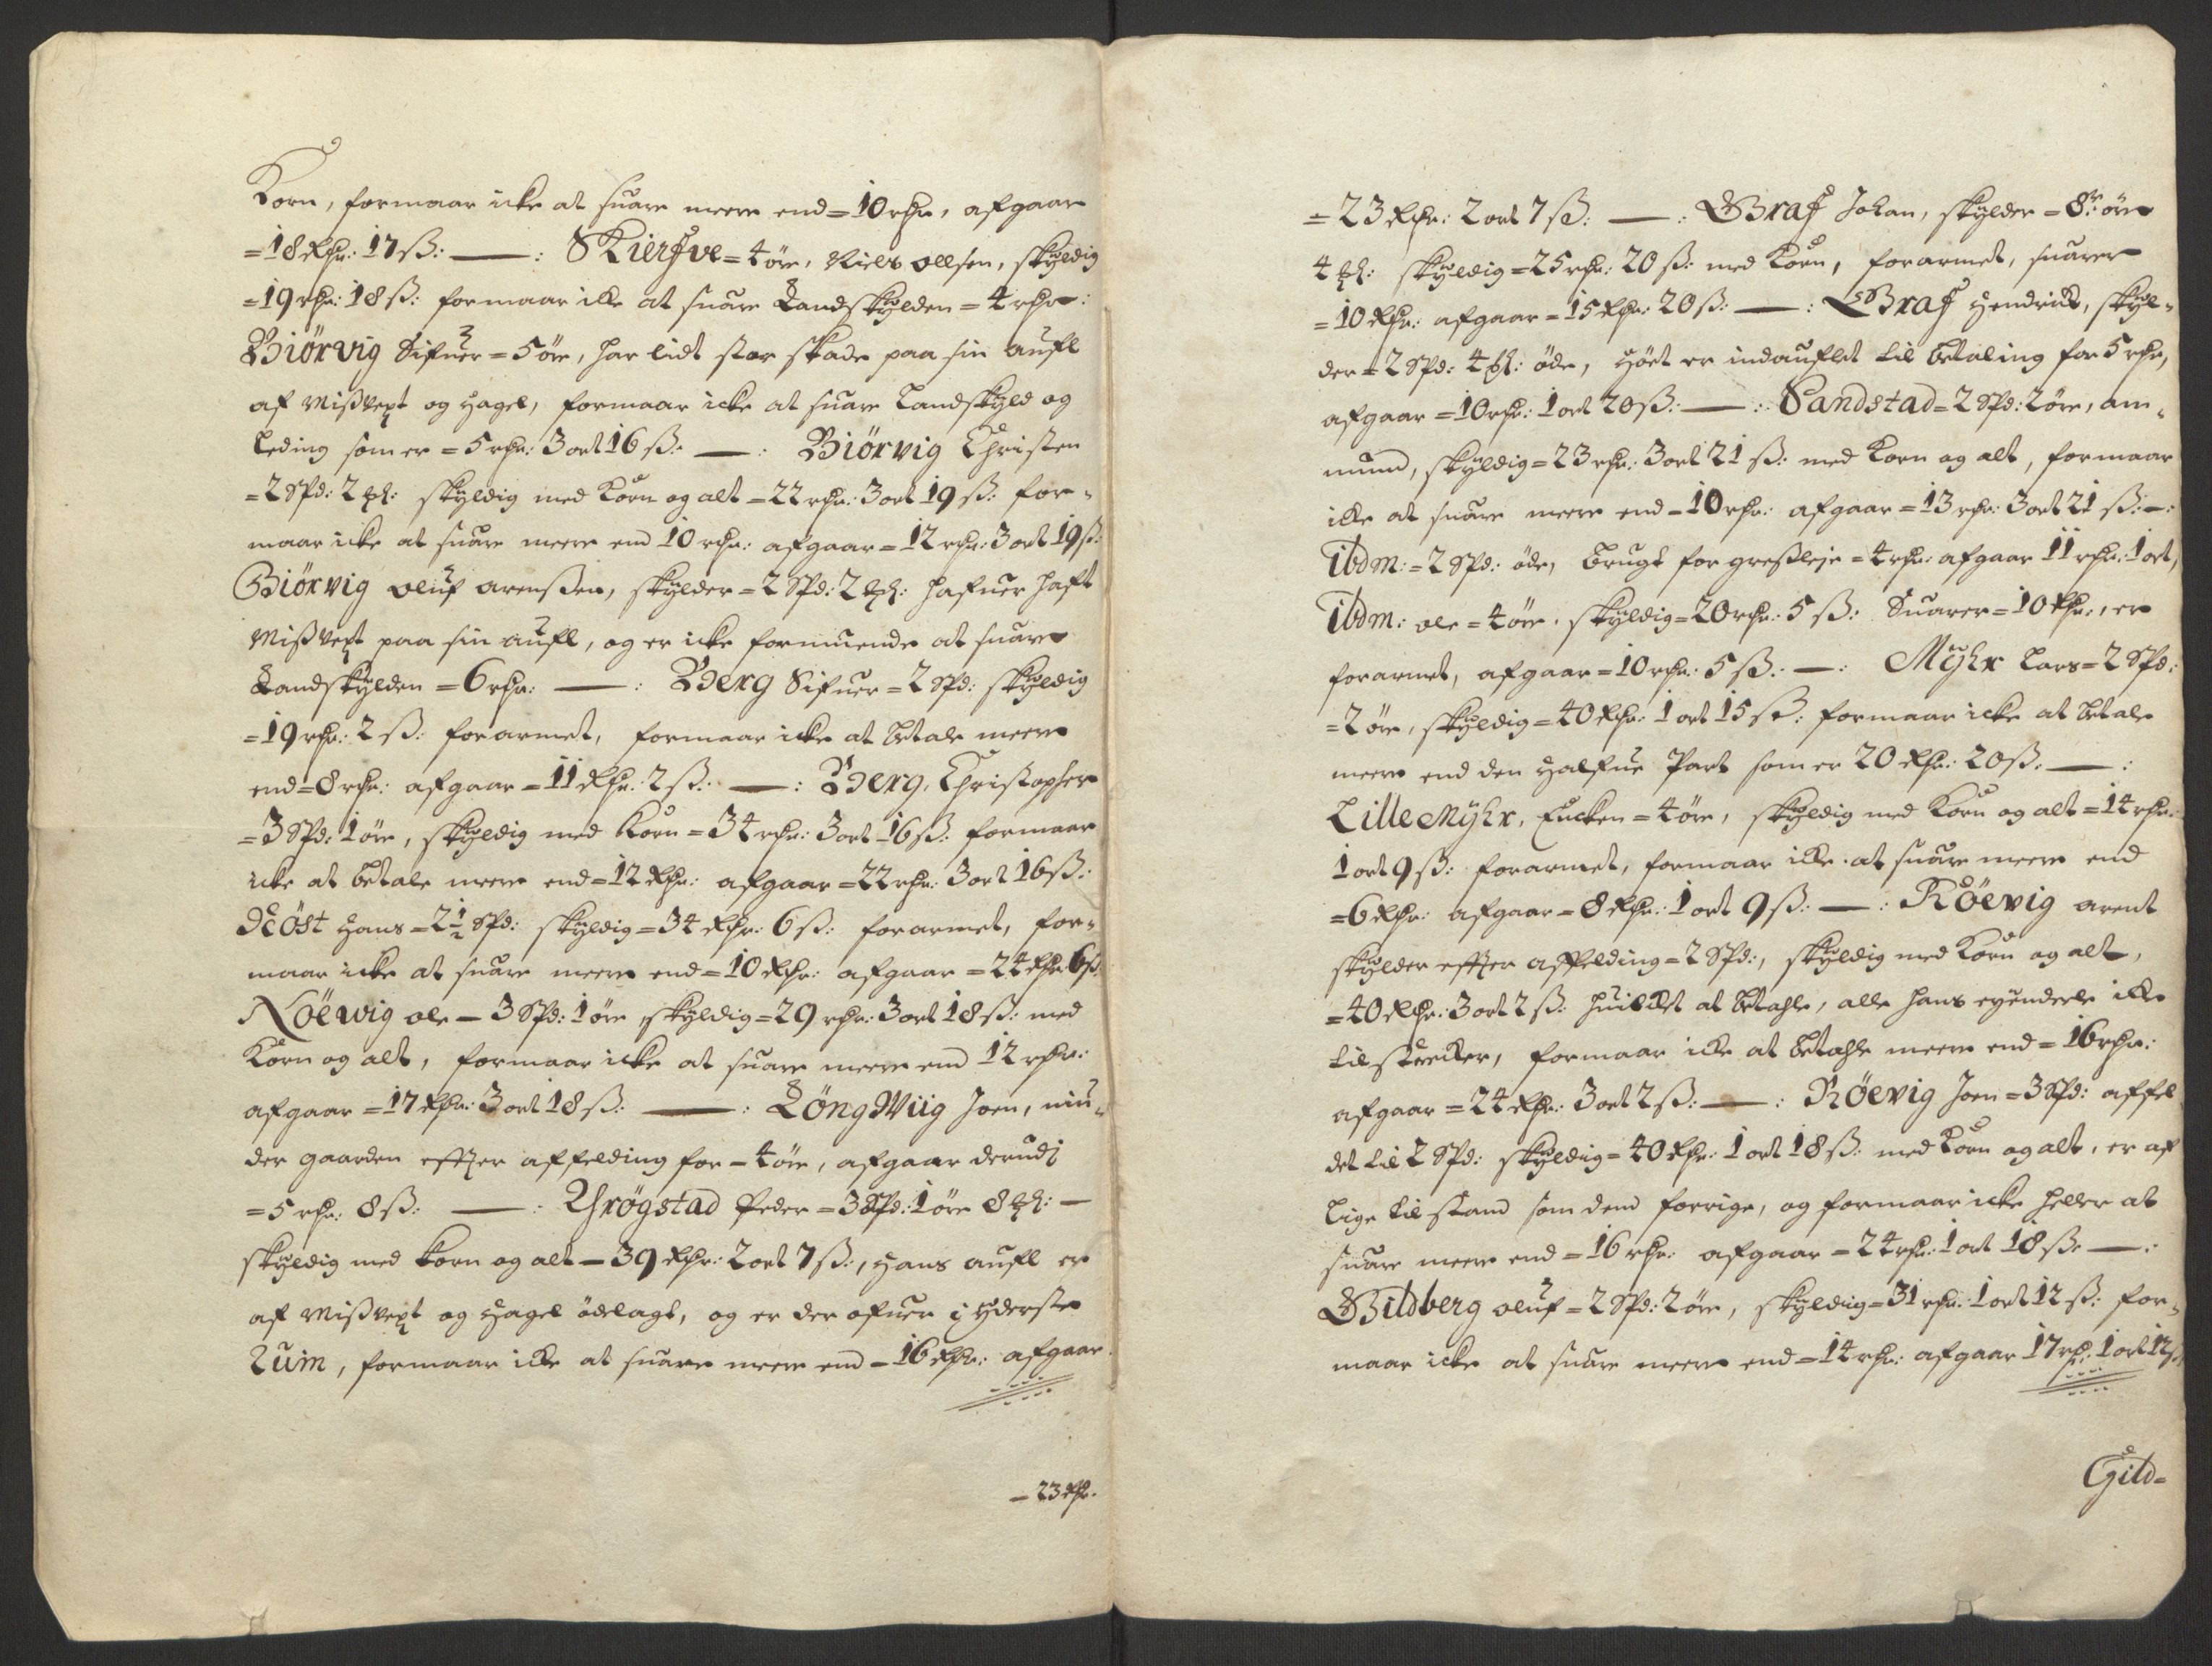 Korn, formaar icke at suare meere end = 10 rdr, afgaar
= 18 Rdr: 17 ß: —: Skierfve = 4 öre, Niels Ollsen, skyldig
= 19 rdr: 18 ß: formaar icke at suare Landskylden = 4 rdr:
Biörvig Sifuer = 5 öre, har lidt stor skade paa sin aufl
af Mißvext og Hagel, formaar icke at suare Landskyld og
Leding som er = 5 rdr: 3 ort 16 ß. —: Biörvig Christen
= 2 Spd: 2 skyldig med Korn og alt = 22 rdr: 3 ort 19 ß: for-
maar icke at suare meere end 10 rdr: afgaar = 12 rdr: 3 ort 19 ß:
Biörvig Oluf Arenßen, skylder = 2 Spd: 2 hafuer haft
Mißvext paa sin aufl, og er icke formuende at suare
Landskylden = 6 rdr: —: Berg Sifuer = 2 Spd: skyldig
= 19 rdr: 2 ß: forarmet, formaar icke at betale meere
end = 8 rdr: afgaar = 11 Rdr: 2 ß: —: Berg, Christopher
= 3 Spd: 1 öre, skyldig med Korn = 34 rdr: 3 ort 16 ß: formaar
icke at betale meere end = 12 Rdr: afgaar = 22 rdr: 3 ort 16 ß:
Höst Hans = 2½ Spd: skyldig = 34 Rdr: 6 ß: forarmet, for-
maar icke at suare meere end = 10 Rdr: afgaar = 24 Rdr 6 ß.
Röewig Ole — 3 Spd: 1 öre, skyldig = 29 rdr: 3 ort 18 ß: med
Korn og alt, formaar icke at suare meere end 12 rdr:
afgaar = 17 Rdr: 3 ort 18 ß: —: Löngwiig Joen, niu-
der gaarden effter affelding for = 4 öre, afgaar derudj
= 5 rdr: 8 ß: —: Grögstad Peder = 3 Spd: 1 öre 8 —
skyldig med Korn og alt = 39 Rdr: 2 ort 7 ß:, Hans aufl er
af Mißvext og Hagel ödelagt, og er der ofuer j yderste
Ruin, formaar icke at suare meere end = 16 Rdr: afgaar
= 23 Rdr.
= 23 Rdr: 2 ort 7 ß: —: Graf Johan, skylder = 8 öre
4 skyldig = 25 rdr: 20 ß: med Korn, forarmet, suarer
= 10 Rdr: afgaar = 15 Rdr: 20 ß: —: Graf Hendrick, skyl-
der = 2 Spd: 4 öde, Höet er indauflet til betaling for 5 rdr,
afgaar = 10 rdr: 1 ort 20 ß: —: Sandstad = 2 Spd: 2 öre, Am-
mund, skyldig = 23 rdr: 3 ort 21 ß: med Korn og alt, formaar
icke at suare meere end = 10 rdr: afgaar = 13 rdr: 3 ort 21 ß: —:
Ibdm: = 2 Spd: öde, brugt for greßleje = 4 rdr: afgaar 11 rdr: 1 ort,
Ibdm: Ole = 4 öre, skyldig = 20 rdr: 5 ß: Suarer = 10 Rdr:, er
forarmet, afgaar = 10 rdr: 5 ß. —: Myhr Lars = 2 Spd:
= 2 öre, skyldig = 40 Rdr: 1 ort 15 ß: formaar icke at betale
meere end den Halfue Part som er 20 Rdr: 20 ß. —:
Lille Myhr, Encken = 4 öre, skyldig med Korn og alt = 14 rdr:
1 ort 9 ß: forarmet, formaar icke at suare meere end
= 6 Rdr: afgaar = 8 Rdr: 1 ort 9 ß: —: Röevig Arent
skylder effter affelding = 2 Spd:, skyldig med Korn og alt,
= 40 Rdr: 3 ort 2 ß: huilcket at betahle, alle hans eyendeele icke
tilstrecker, formaar icke at betahle meere end = 16 rdr:
afgaar = 24 Rdr: 3 ort 2 ß: —: Röevig Joen = 3 Spd: affel
det til 2 Spd: skyldig = 40 Rdr: 1 ort 18 ß: med Korn og alt, er af
lige tilstand som dend forrige, og formaar icke heller at
suare meere end = 16 rdr: afgaar = 24 rdr: 1 ort 18 ß. —:
Gildberg Oluf = 2 Spd: 2 öre, skyldig = 31 rdr: 1 ort 12 ß: for-
maar icke at suare meere end = 14 rdr: afgaar 17 rdr: 1 ort 12 ß
Gild-